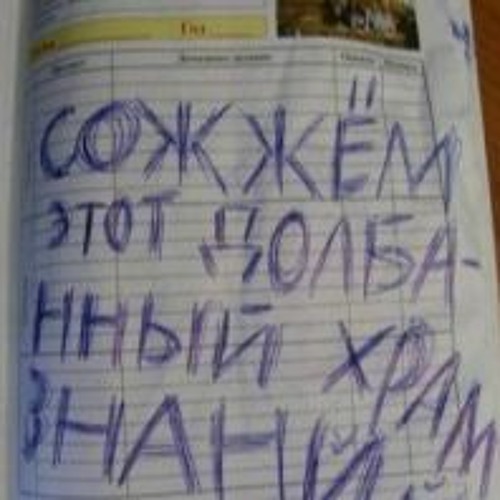 СОЖЖЁМ
ЭТОТ ДОЛБА-
ННЫЙ ХРАМ
ЗНАНИЙ